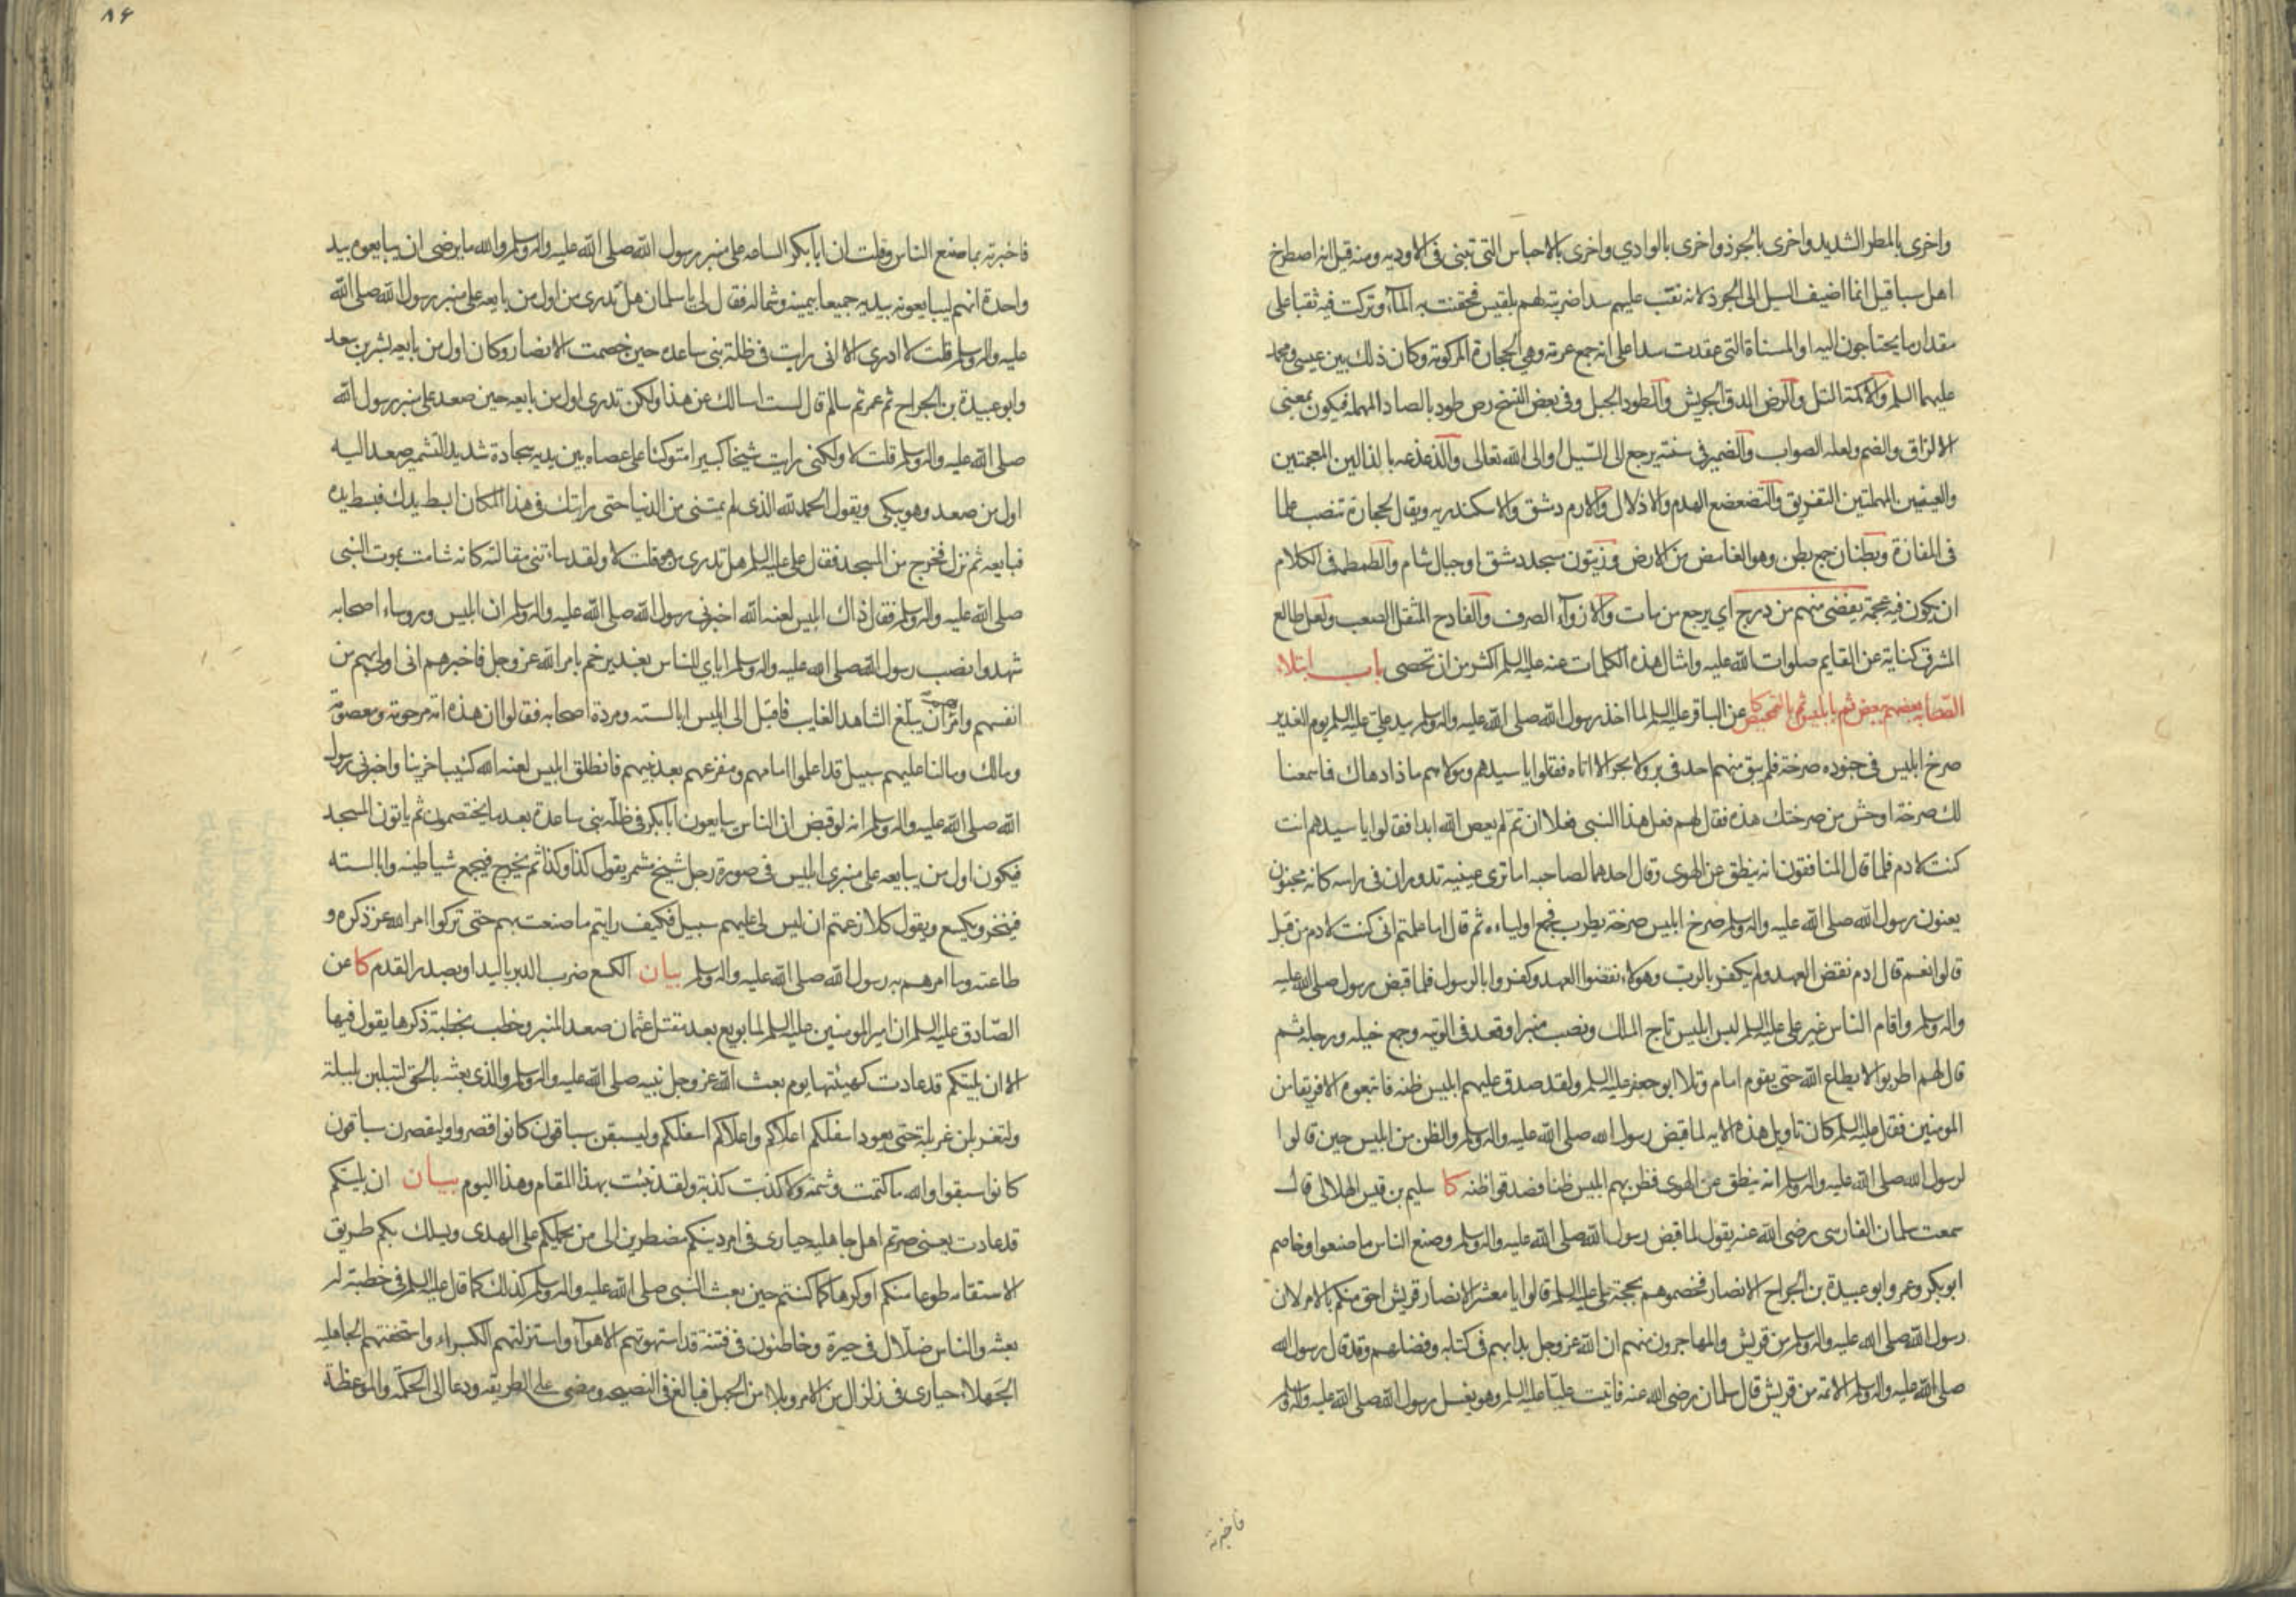 واخرى بالمطر الشديد واخرى بالجرذ واخرى بالوادي واخرى بالاحباس التي تبنى في الاوديه ومنه قيل انه اصطرخ
اهل سبا قيل انما اضيف السيل الى الجرذ لانه نقب عليهم سدا ضربته لهم بلقيس فحقنت به المآء وتركت فيه ثقبا على
مقدار ما يحتاجون اليه او المسناة التي عقدت سدا على انه جمع عرمة وهي الحجارة المركومة وكان ذلك بين عيسى ومحمد
عليهما السلم والاكمة التل والرض الدق الجريش والطود الجبل وفي بعض النسخ رص طود بالصاد المهملة فيكون بمعنى
الالزاق والضم ولعله الصواب والضمير في سننه يرجع الى السيل او الى الله تعالى والذعذعه بالذالين المعجمتين
والعينين المهملتين التفريق والتضعضع الهدم والاذلال والارم دمشق والاسكندريه ويقال لحجارة تنصب علما
في المفازة وبطنان جمع بطن وهو الغامض من الارض وزيتون مسجد دمشق او جبال شام والطمطمه في الكلام
ان يكون فيه عجمة يفضى منهم من درج اي يرجع من مات والازوآء الصرف والفادح المثقل الصعب ولعل طالع
المشرق كناية عن القايم صلوات الله عليه وامثال هذه الكلمات عنه عليه السلم اكثر من ان تحصى باب ابتلاء
الصحابه بعضهم ببعض ثم بابليس ثم بالتمحيص كا عن الباقر عليه السلم لما اخذ رسول الله صلى الله عليه واله وسلم بيد علي عليه السلم يوم الغدير
صرخ ابليس في جنوده صرخة فلم يبق منهم احد في بر ولا بحر الا اتاه فقالوا يا سيدهم ومولاهم ماذا دهاك فما سمعنا
لك صرخة اوحش من صرختك هذه فقال لهم فعل هذا النبي فعلا ان تم لم يعص الله ابدا فقالوا يا سيدهم انت
كنت لادم فلما قال المنافقون انه ينطق عن الهوى وقال احدهما لصاحبه اما ترى عينيه تدوران في راسه كانه مجنون
يعنون رسول الله صلى الله عليه واله وسلم صرخ ابليس صرخة يطرب فجمع اولياءه ثم قال اما علمتم اني كنت لادم من قبل
قالوا نعم قال ادم نقض العهد ولم يكفر بالرب وهولاء نقضوا العهد وكفروا بالرسول فلما قبض رسول صلى الله عليه
واله وسلم واقام الناس غير علي عليه السلم لبس ابليس تاج الملك ونصب منبرا وقعد في الوتبه وجمع خيله ورجله ثم
قال لهم اطربوا لا يطاع الله حتى يقوم امام وتلا ابو جعفر عليه السلم ولقد صدق عليهم ابليس ظنه فاتبعوه الا فريقا من
المومنين فقال عليه السلم كان تاويل هذه الايه لما قبض رسول الله صلى الله عليه واله وسلم والظن من ابليس حين قالوا
لرسول الله صلى الله عليه واله وسلم انه ينطق عن الهوى فظن بهم ابليس ظنا فصدقوا ظنه كا سليم بن قيس الهلالي قال
سمعت سلمان الفارسي رضي الله عنه يقول لما قبض رسول الله صلى الله عليه واله وسلم وصنع الناس ما صنعوا وخاصم
ابو بكر وعمر وابو عبيدة بن الجراح الانصار فخصموهم بحجة علي عليه السلم قالوا يا معشر الانصار قريش احق منكم بالامر لان
رسول الله صلى الله عليه واله وسلم من قريش والمهاجرون منهم ان الله عز وجل بدا بهم في كتابه وفضلهم وقد قال رسول الله
صلى الله عليه واله وسلم الائمة من قريش قال سلمان رضي الله عنه فاتيت عليا عليه السلم وهو يغسل رسول الله صلى الله عليه واله وسلم
فاخبرته
٨۴
فاخبرته بما صنع الناس وقلت ان ابا بكر الساعه على منبر رسول الله صلى الله عليه واله وسلم والله ما يرضى ان يبايعوه بيد
واحدة انهم ليبايعونه بيديه جميعا بيمينه وشماله فقال لي يا سلمان هل تدري من اول من بايعه على منبر رسول الله صلى الله
عليه واله وسلم قلت لا ادري الا اني رايت في ظلة بني ساعده حين خصمت الانصار وكان اول من بايعه بشر بن سعد
وابو عبيدة بن الجراح ثم عمر ثم سالم قال لست اسالك عن هذا ولكن تدري اول من بايعه حين صعد على منبر رسول الله
صلى الله عليه واله وسلم قلت لا ولكني رايت شيخا كبيرا متوكئا على عصاه بين يديه سجادة شديد التشمير صعد اليه
اول من صعد وهو يبكي ويقول الحمد لله الذي لم يمتني من الدنيا حتى رايتك في هذا المكان ابسط يدك فبسط يده
فبايعه ثم نزل فخرج من المسجد فقال علي عليه السلم هل تدري من هو قلت لا ولقد ساءتني مقالته كانه شامت بموت النبي
صلى الله عليه واله وسلم فقال ذاك ابليس لعنه الله اخبرني رسول الله صلى الله عليه واله وسلم ان ابليس وروساء اصحابه
شهدوا نصب رسول الله صلى الله عليه واله وسلم اياي للناس بغدير خم بامر الله عز وجل فاخبرهم اني اولى بهم من
انفسهم وامرهم ان يبلغ الشاهد الغايب فاقبل الى ابليس ابالسته ومردة اصحابه فقالوا ان هذه امه مرحومة ومعصومة
ومالك ومالنا عليهم سبيل قد اعلموا امامهم ومفزعهم بعد نبيهم فانطلق ابليس لعنه الله كئيبا حزينا واخبرني رسول
الله صلى الله عليه واله وسلم انه لو قبض ان الناس يبايعون ابا بكر في ظلة بني ساعدة بعد ما يختصمون ثم ياتون المسجد
فيكون اول من يبايعه على منبري ابليس في صورة رجل شيخ مشمر يقول كذا وكذا ثم يخرج فيجمع شياطينه وابالسته
فينخر ويكسع ويقول كلا زعمتم ان ليس لي عليهم سبيل فكيف رايتم ما صنعت بهم حتى تركوا امر الله عز ذكره و
طاعته وما امرهم به رسول الله صلى الله عليه واله وسلم بيان الكسع ضرب الدبر باليد او بصدر القدم كا عن
الصادق عليه السلم ان امير المومنين عليه السلم لما بويع بعد مقتل عثمان صعد المنبر وخطب بخطبة ذكرها يقول فيها
الا ان بليتكم قد عادت كهيئتها يوم بعث الله عز وجل نبيه صلى الله عليه واله وسلم والذي بعثه بالحق لتبلبلن بلبلة
ولتغربلن غربلة حتى يعود اسفلكم اعلاكم واعلاكم اسفلكم وليسبقن سباقون كانوا قصروا وليقصرن سباقون
كانوا سبقوا والله ما كتمت وشمة ولا كذبت كذبة ولقد نبئت بهذا المقام وهذا اليوم بيان ان بليتكم
قد عادت يعني صرتم اهل جاهليه حيارى في امر دينكم مضطرين الى من يحملكم على الهدى ويسلك بكم طريق
الاستقامه طوعا منكم او كرها كما كنتم حين بعث النبي صلى الله عليه واله وسلم كذلك كما قال عليه السلم في خطبة له
بعثه والناس ضلال في حيرة وخاطئون في فتنة قد استهوتهم الاهوآء واستزلتهم الكبراء واستخفتهم الجاهليه
الجهلاء حيارى في زلزال من الامر وبلاء من الجهل فبالغ في النصيحه ومضى على الطريقه ودعا الى الحكمة والموعظة